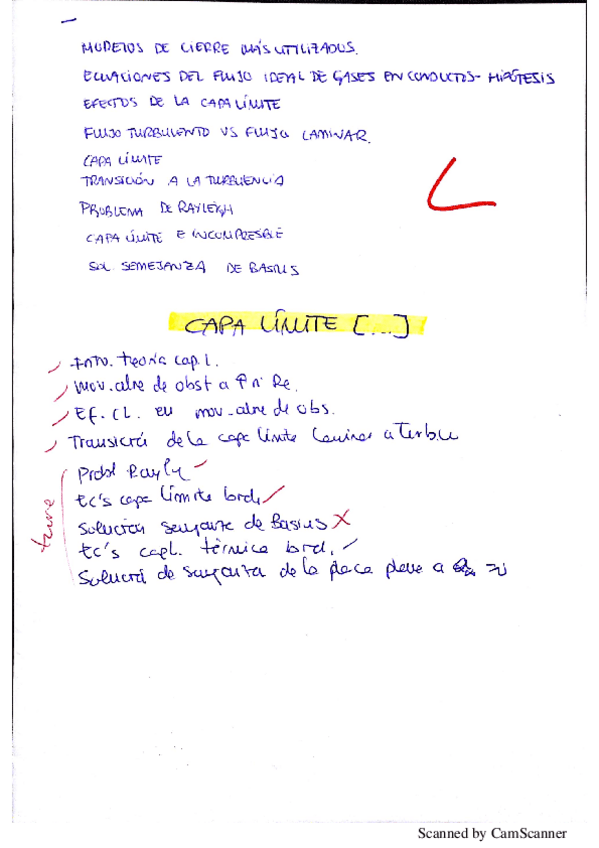 MODELOS DE CIERRE MÁS UTILIZADOS.
ECUACIONES DEL FLUJO IDEAL DE GASES EN CONDUCTOS - HIPÓTESIS
EFECTOS DE LA CAPA LÍMITE
FLUJO TURBULENTO VS FLUJO LAMINAR.
CAPA LÍMITE
TRANSICIÓN A LA TURBULENCIA
PROBLEMA DE RAYLEIGH
CAPA LÍMITE E INCOMPRESIBLE
SOL. SEMEJANZA DE BASIUS
CAPA LÍMITE [...]
teoría cap. l.
mov. alre de obst a Re.
Ef. CL. en mov. alre de obs.
Transición de la capa límite laminar a Turbu
Probl Rayly
Ec's capa límite bid.
solución semjante de Basius X
Ec's cap l. térmica bid.
Solución de semjanza de la placa plana a
Scanned by CamScanner